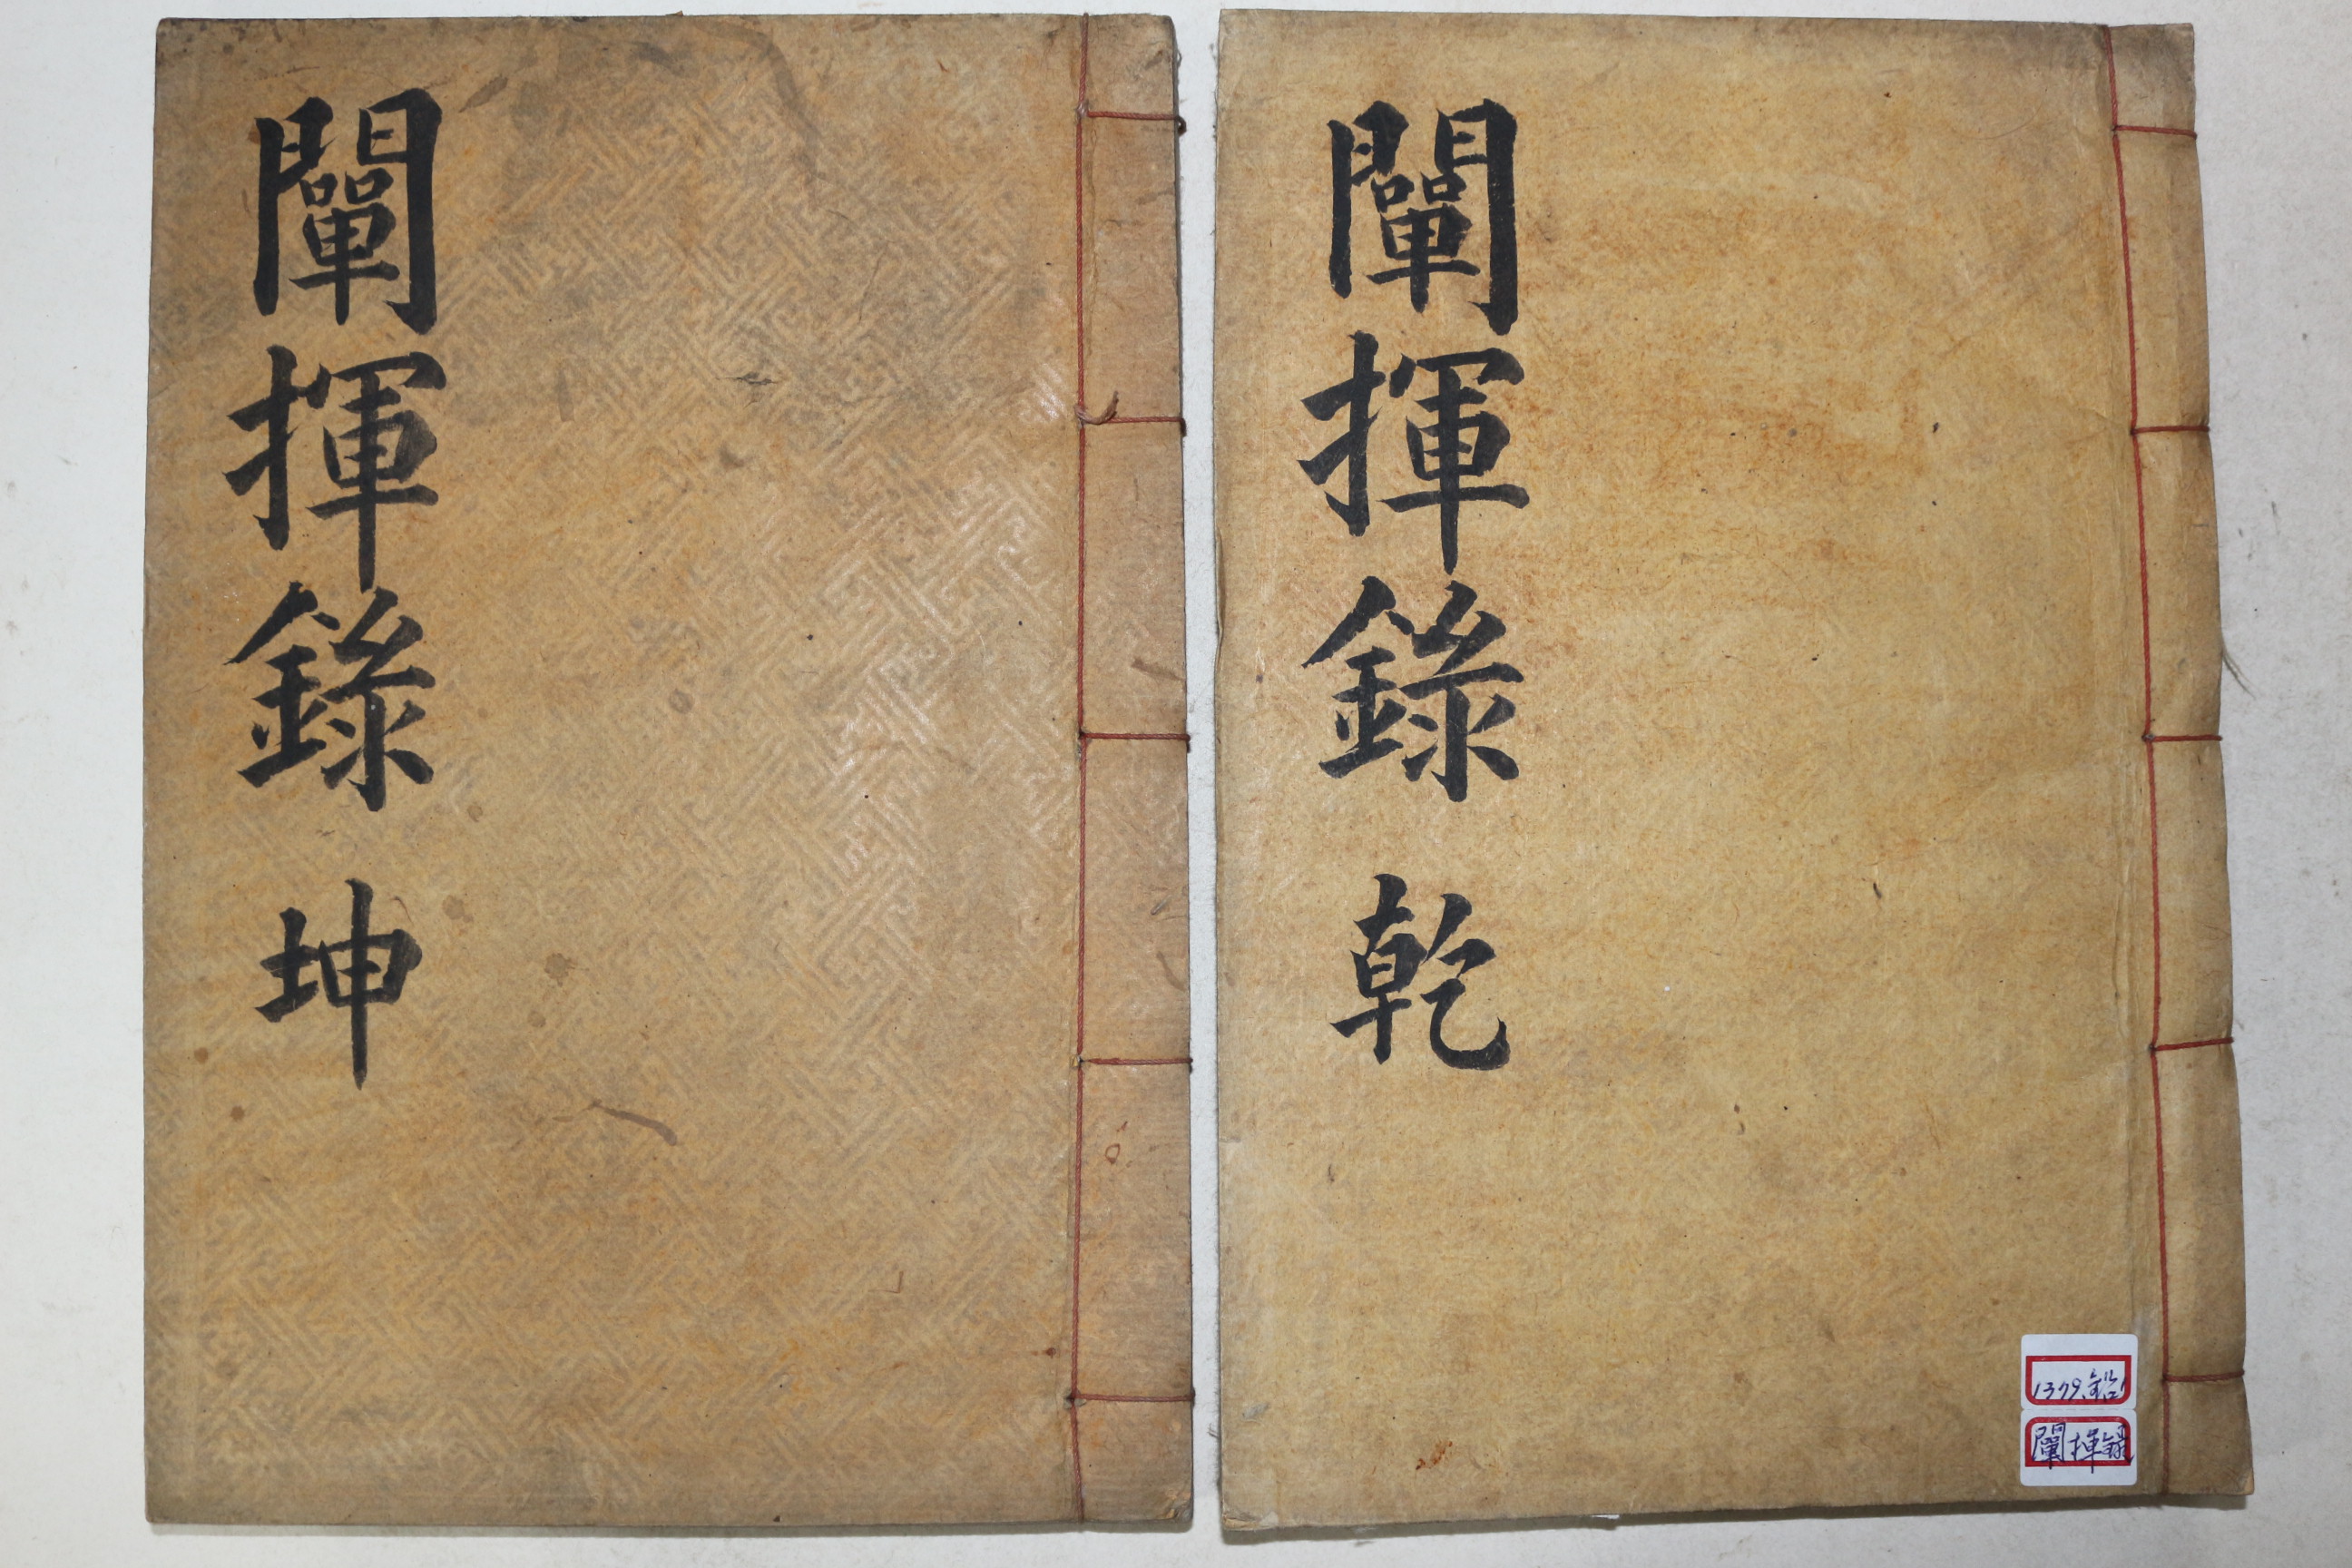 闡揮錄 乾
闡揮錄 坤
1379.鉛1
闡揮錄